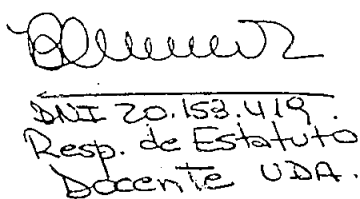 DNI 20.153.419.
Resp. de Estatuto
Docente UDA.